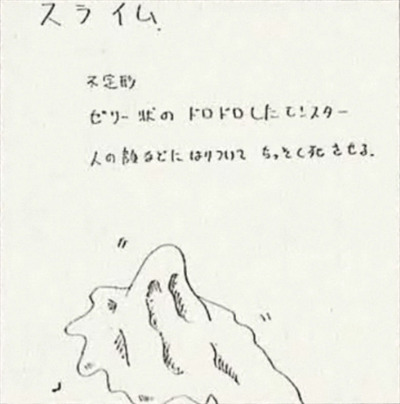 スライム.
不定形
ゼリー状の ドロドロしたモンスター
人の顔などにはりついて ちっそく死させる.